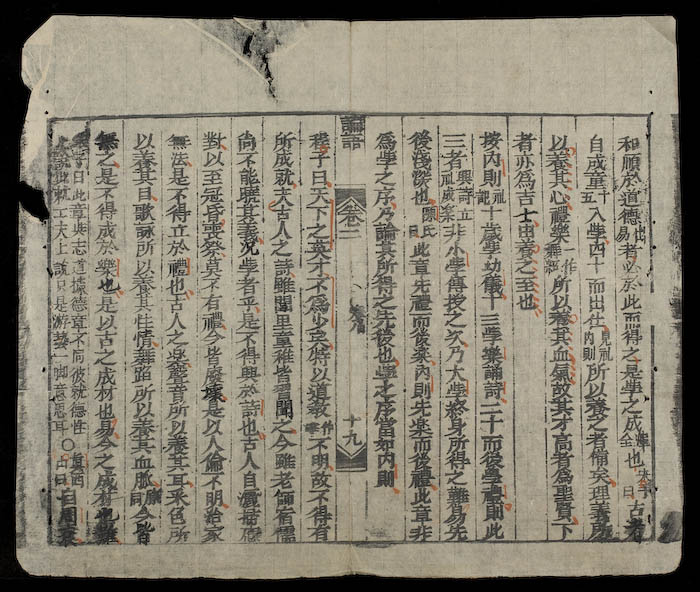 和順於道德者必於此而得之是學之成也 古者
自成童十五入學四十而出仕見禮內則所以養之者備矣理義所
以養其心禮樂所以養其血氣故其才高者爲聖賢下
者亦爲吉士由養之至也
按內則禮記十歲學幼儀十三學樂誦詩二十而後學禮則此
三者興詩立禮成樂非小學傳授之次乃大學終身所得之難易先
後淺深也陳氏曰此章先禮而後樂內則先樂而後禮此章非
爲學之序乃論其所得之先後也學之序當如內則
論語 卷二 十九
程子曰天下之英才不爲少矣特以道敎不明故不得有
所成就夫古人之詩雖閭里童稚皆習聞之今雖老師宿儒
尚不能曉其義況學者乎是不得興於詩也古人自灑掃應
對以至冠昏喪祭莫不有禮今皆廢壞是以人倫不明治家
無法是不得立於禮也古人之樂聲音所以養其耳采色所
以養其目歌詠所以養其性情舞蹈所以養其血脈今皆
無之是不得成於樂也是以古之成材也易今之成材也難
子曰此章與志道據德章不同彼就德性
上說此就工夫上說只是游藝一脚意思耳○眞西山曰自周衰